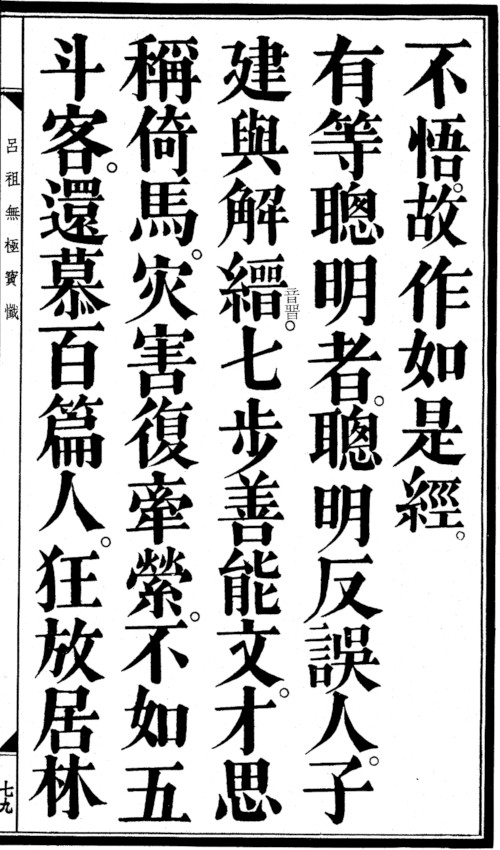 不悟。故作如是經。
有等聰明者。聰明反誤人。子
建與解縉音晉。七步善能文。才思
稱倚馬。灾害復牽縈。不如五
斗客。還慕百篇人。狂放居林
呂祖無極寶懺
七九